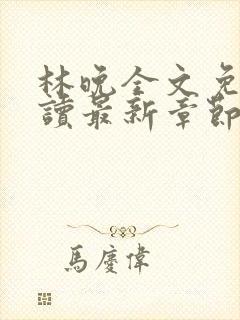 林晚全文免
讀最新章節
馬慶偉